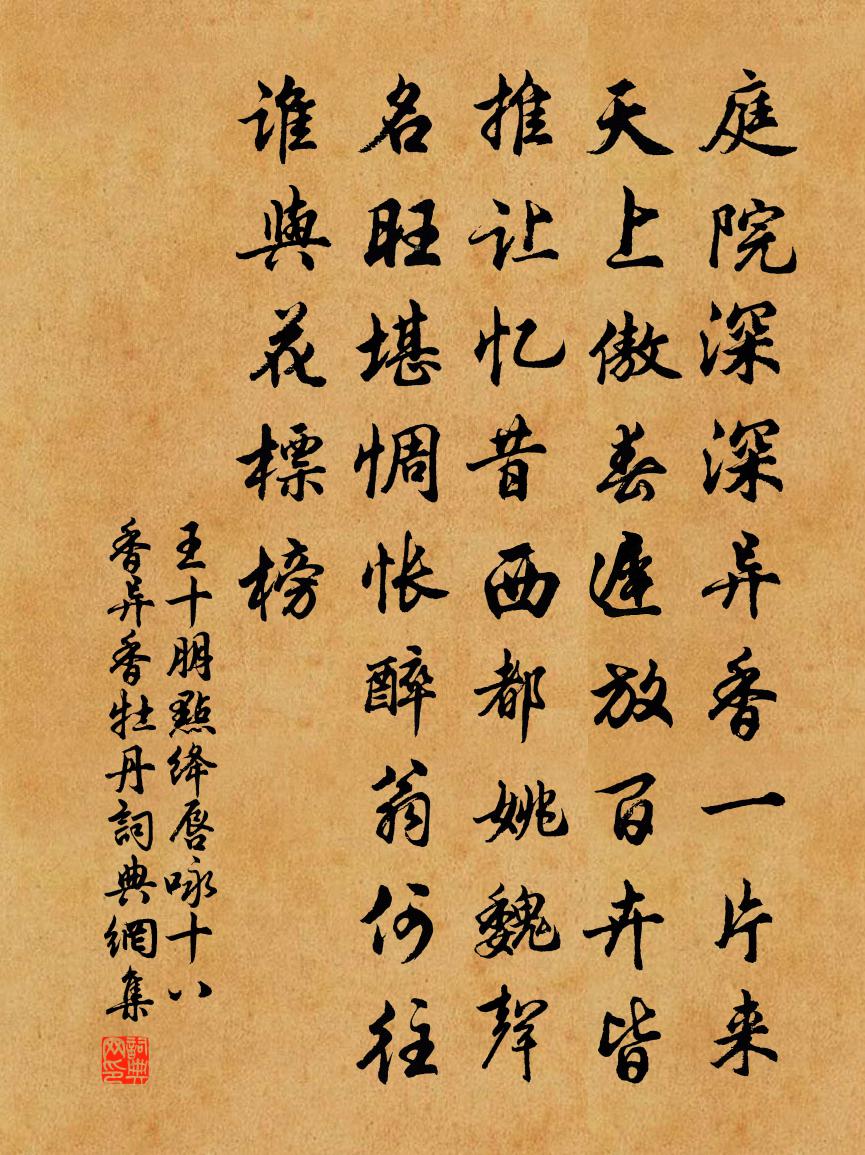 庭院深深异香一片来
天上傲春遲放百卉皆
推让忆昔西都姚魏聲
名旺堪惆怅醉翁何往
谁與花標榜
王十朋點绛唇咏十八
香异香牡丹詞典網集
詞典网印